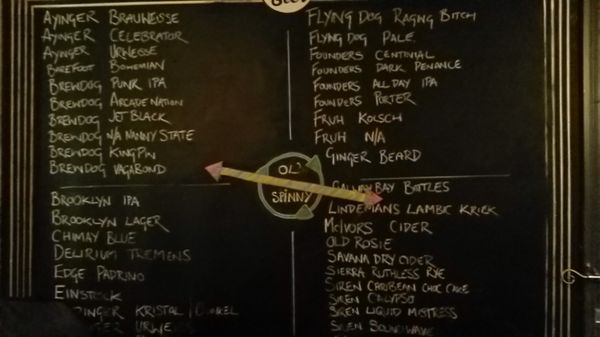 AYINGER BRAUWEISSE
AYINGER CELEBRATOR
AYINGER URWEISSE
BAREFOOT BOHEMIAN
BREWDOG PUNK IPA
BREWDOG ARCADE NATION
BREWDOG JET BLACK
BREWDOG N/A NANNY STATE
BREWDOG KINGPIN
BREWDOG VAGABOND
BROOKLYN IPA
BROOKLYN LAGER
CHIMAY BLUE
DELIRIUM TREMENS
EDGE PADRINO
EINSTOCK
KRISTAL
URWEISSE
OL'
SPINNY
FLYING DOG RAGING BITCH
FLYING DOG PALE
FOUNDERS CENTINIAL
FOUNDERS DARK PENANCE
FOUNDERS ALL DAY IPA
FOUNDERS PORTER
FRUH KOLSCH
FRUH N/A
GINGER BEARD
GALWAY BAY BOTTLES
LINDEMANS LAMBIC KRIEK
McIVORS CIDER
OLD ROSIE
SAVANA DRY CIDER
SIERRA RUTHLESS RYE
SIREN CARIBEAN CHOC CAKE
SIREN CALYPSO
SIREN LIQUID MISTRESS
SIREN SOUNDWAVE